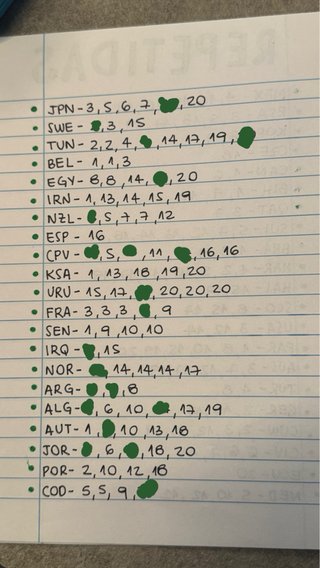 REPETIDAS
JPN - 3, 5, 6, 7, , 20
SWE - , 3, 15
TUN - 2, 2, 4, , 14, 17, 19,
BEL - 1, 1, 3
EGY - 8, 8, 14, , 20
IRN - 1, 13, 14, 15, 19
NZL - , 5, 7, 7, 12
ESP - 16
CPV - , 5, , 11, , 16, 16
KSA - 1, 13, 18, 19, 20
URU - 15, 17, , 20, 20, 20
FRA - 3, 3, 3, , 9
SEN - 1, 9, 10, 10
IRQ - , 15
NOR - , 14, 14, 14, 17
ARG - , , 8
ALG - , 6, 10, , 17, 19
AUT - 1, , 10, 13, 18
JOR - , 6, , 18, 20
POR - 2, 10, 12, 18
COD - 5, 5, 9,